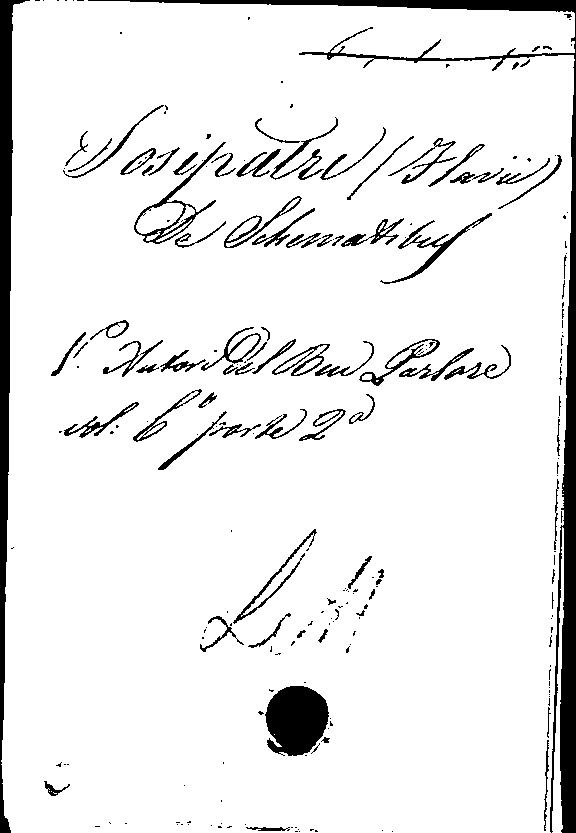 6. 1. 15
Sosipatre (Flavii)
De Schematibus
V.° Autori Del Ben Parlare
vol: 6° parte 2ª
Lett